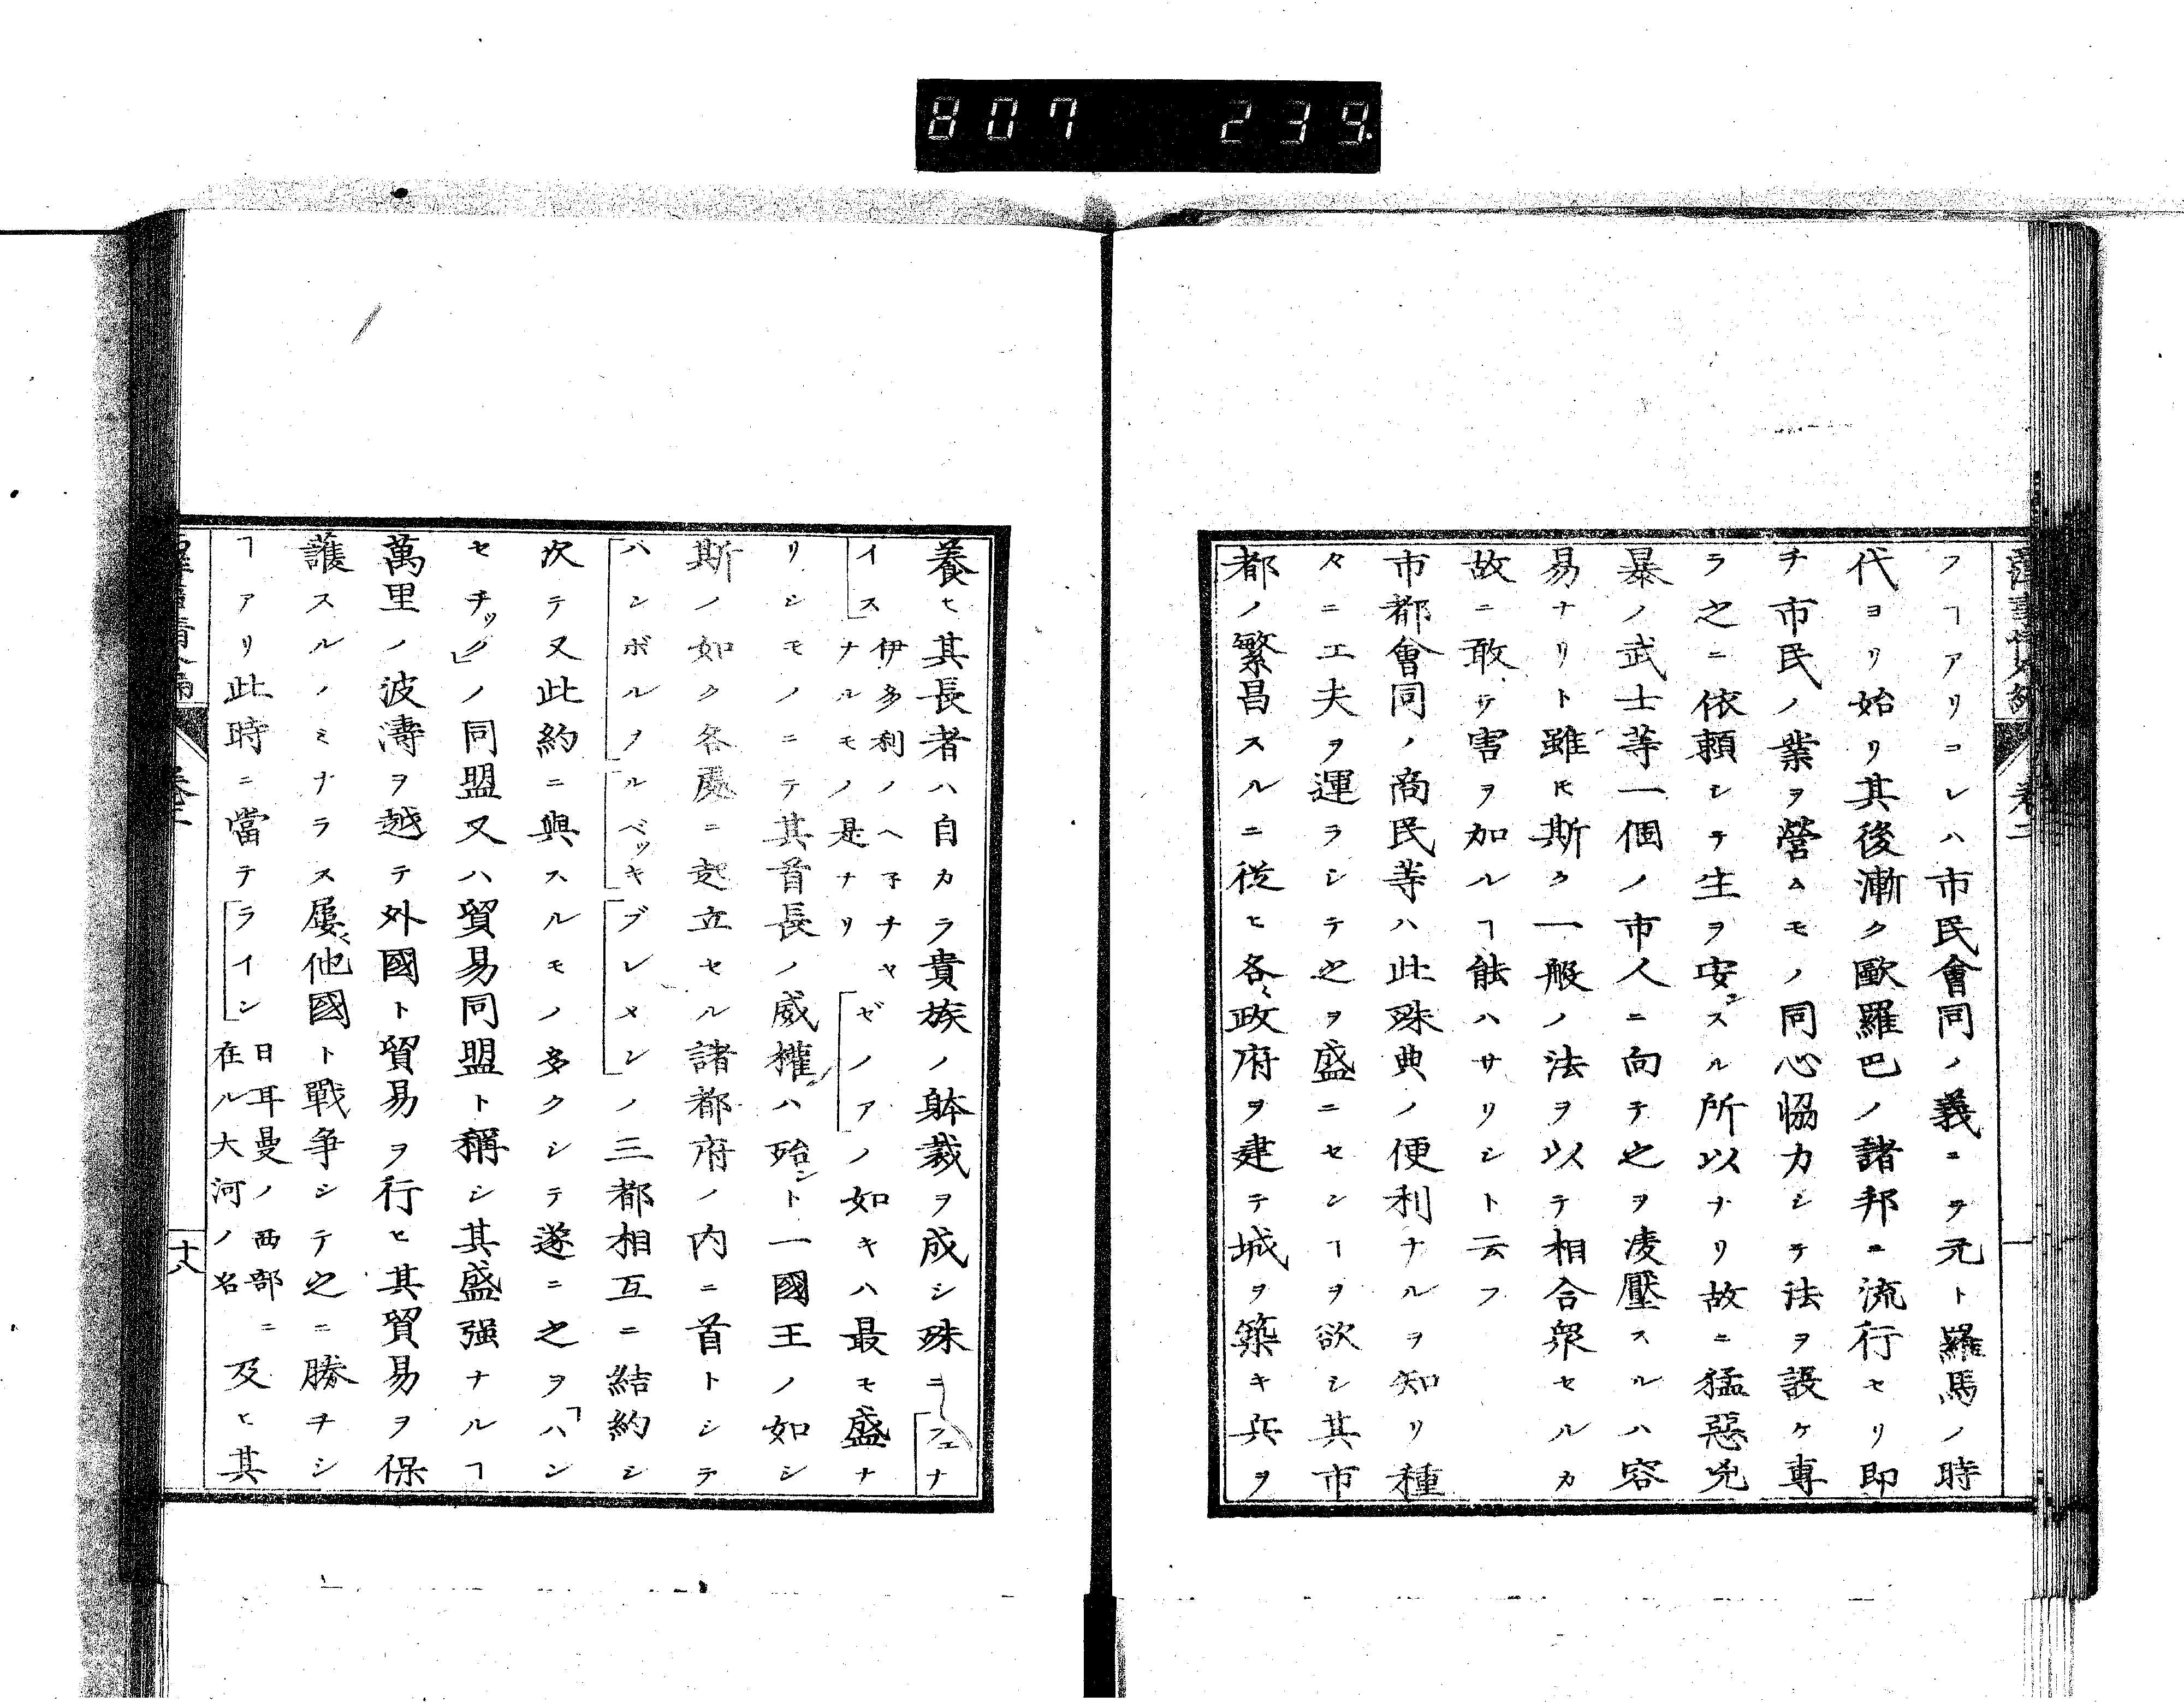 807 239
フヿアリコレハ市民會同ノ義ニヲ元ト羅馬ノ時
代ヨリ始リ其後漸ク歐羅巴ノ諸邦ニ流行セリ即
チ市民ノ業ヲ營ムモノ同心恊力シテ法ヲ設ケ專
ラ之ニ依頼シテ生ヲ安ンスル所以ナリ故ニ猛惡兇
暴ノ武士等一個ノ市人ニ向テ之ヲ凌壓スルハ容
易ナリト雖𪜈斯ク一般ノ法ヲ以テ相合衆セルカ
故ニ敢テ害ヲ加ルヿ能ハサリシト云フ
市都會同ノ商民等ハ此殊典ノ便利ナルヲ知リ種
々ニ工夫ヲ運ラシテ之ヲ盛ニセンヿヲ欲シ其市
都ノ繁昌スルニ從ヒ各〻政府ヲ建テ城ヲ築キ兵ヲ
養ヒ其長者ハ自カラ貴族ノ躰裁ヲ成シ殊ニ「フェナ
イス」伊多利ノヘ子チヤナルモノ是ナリ「ゼノア」ノ如キハ最モ盛ナ
リシモノニテ其首長ノ威權ハ殆ント一國王ノ如シ
斯ノ如ク各處ニ起立セル諸都府ノ内ニ首トシテ
「ハンボルフ」「ルベッキ」「ブレメン」ノ三都相互ニ結約シ
次テ又此約ニ與スルモノ多クシテ遂ニ之ヲ「ハン
セチック」ノ同盟又ハ貿易同盟ト稱シ其盛强ナルヿ
萬里ノ波濤ヲ越テ外國ト貿易ヲ行ヒ其貿易ヲ保
護スルノミナラス屢〻他國ト戰爭シテ之ニ勝チシ
ヿアリ此時ニ當テ「ライン」日耳曼ノ西部ニ在ル大河ノ名及ヒ其
十八